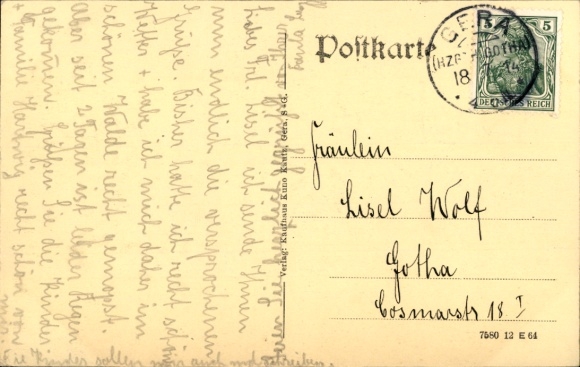 Postkarte
GERA
(HZGT. GOTHA)
18
14
5
DEUTSCHES REICH
Fräulein
Lisel Wolf
Gotha
Cosmarstr 18 I
7580 12 E 64
Verlag: Kaufhaus Kuno Kautz, Gera, S.-G.
Liebes Frl. Lisel ich sende Ihnen
nun endlich die versprochenen
Grüße. Bisher hatte ich recht schön
Wetter + habe ich mich daher im
schönen Walde recht gemopst.
Aber seit 2 Tagen ist leider Regen
gekommen. Grüßen Sie die Kinder
+ Familie Hartwig recht schön von
mir.
Die Kinder sollen mir auch mal schreiben.
Sie herzlich